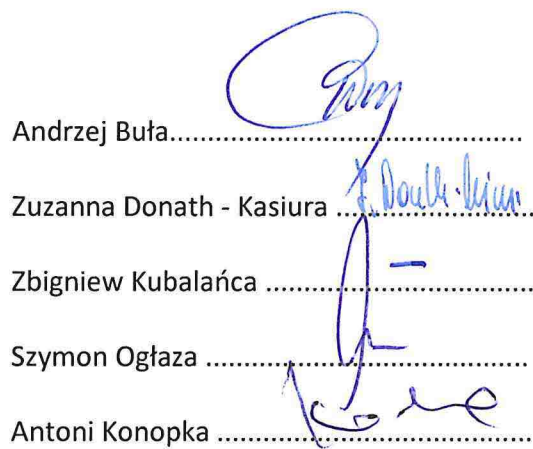 Andrzej Buła....................................................
Zuzanna Donath - Kasiura ............................
Zbigniew Kubalańca .......................................
Szymon Ogłaza ................................................
Antoni Konopka ..............................................